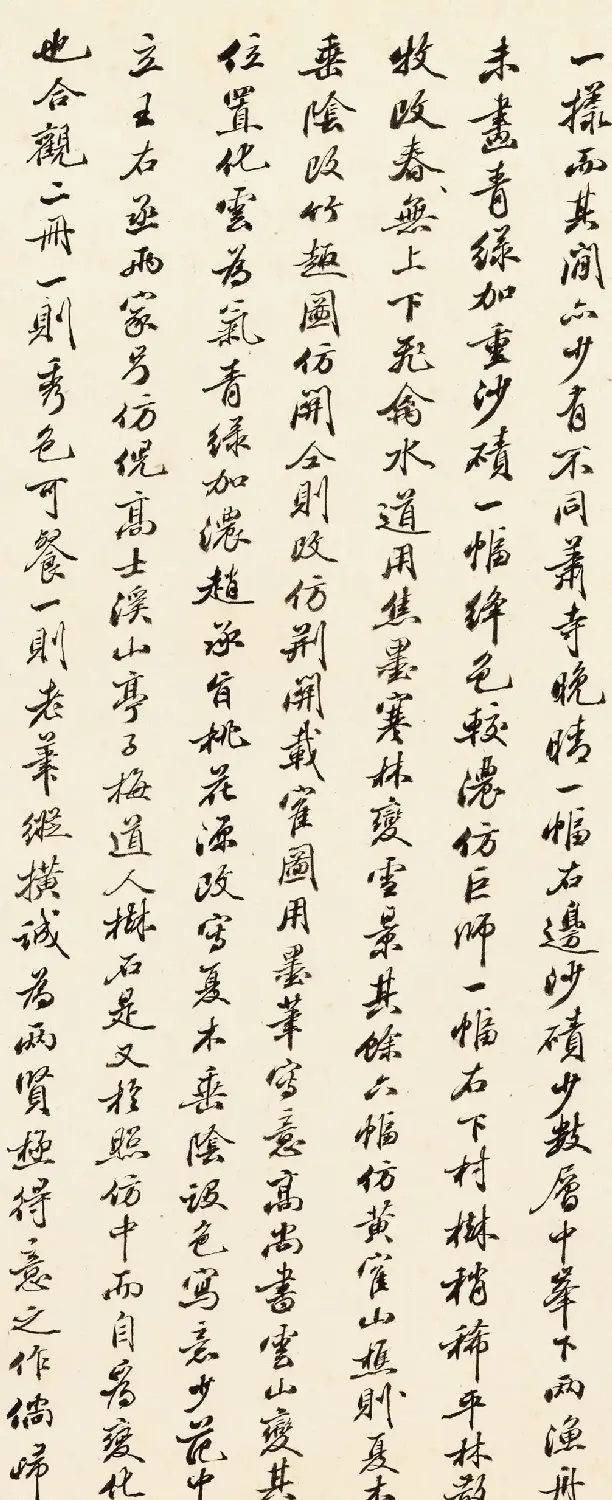 一樣而其間亦少有不同蕭寺晚晴一幅右邊沙磧少數層中峯下兩漁舟
未畫青綠加重沙磧一幅絳色較濃仿巨師一幅右下村樹稍稀平林散
牧改春無上下飛禽水道用焦墨寒林變雪景其餘六幅仿黃雀山樵則夏木
垂陰改竹趣圖仿關仝則改仿荆關載雀圖用墨筆寫意高尚書雲山變其
位置化雲為氣青綠加濃趙承旨桃花源改寫夏木垂陰設色寫意少范中
立王右丞兩家另仿倪高士溪山亭子梅道人樹石是又於照仿中而自為變化
也合觀二冊一則秀色可餐一則老筆縱橫誠為兩賢極得意之作倘歸